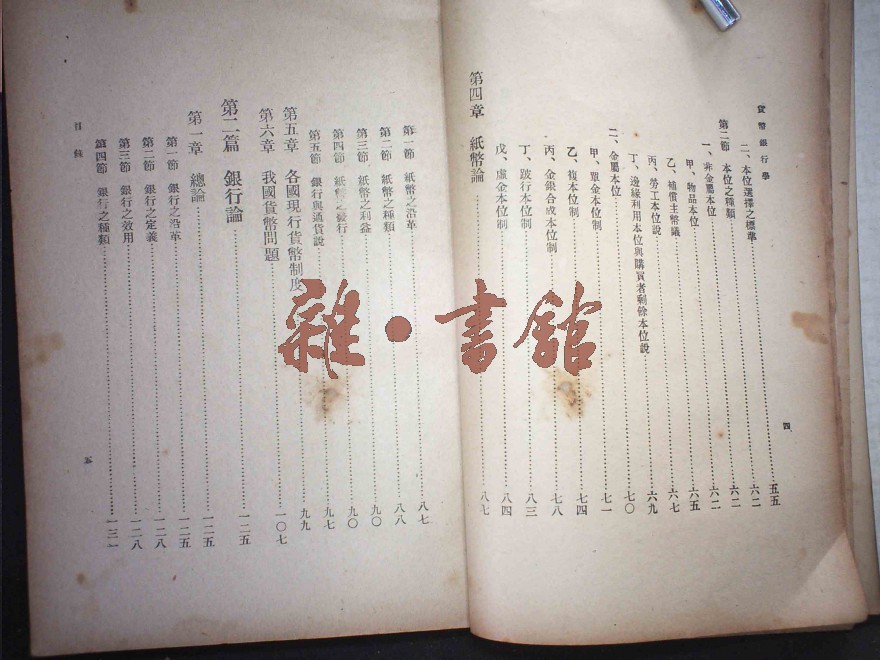 貨幣銀行學
四
二、本位選擇之標準……六二
第二節 本位之種類……六二
一、非金屬本位……六二
甲、物品本位……六五
乙、補償主幣議……六七
丙、勞工本位說……六九
丁、邊緣利用本位與購買者剩餘本位說……七〇
二、金屬本位……七一
甲、單金本位制……七一
乙、複本位制……七四
丙、金銀合成本位制……七八
丁、跛行本位制……八三
戊、虛金本位制……八四
第四章 紙幣論……八七
第一節 紙幣之沿革……八七
第二節 紙幣之種類……八八
第三節 紙幣之利益……九〇
第四節 紙幣之發行……九〇
第五節 銀行與通貨說……九七
第五章 各國現行貨幣制度……九九
第六章 我國貨幣問題……一〇七
第二篇 銀行論……一二五
第一章 總論……一二五
第一節 銀行之沿革……一二五
第二節 銀行之定義……一二八
第三節 銀行之效用……一二八
第四節 銀行之種類……一三一
目錄
五
雜·書館